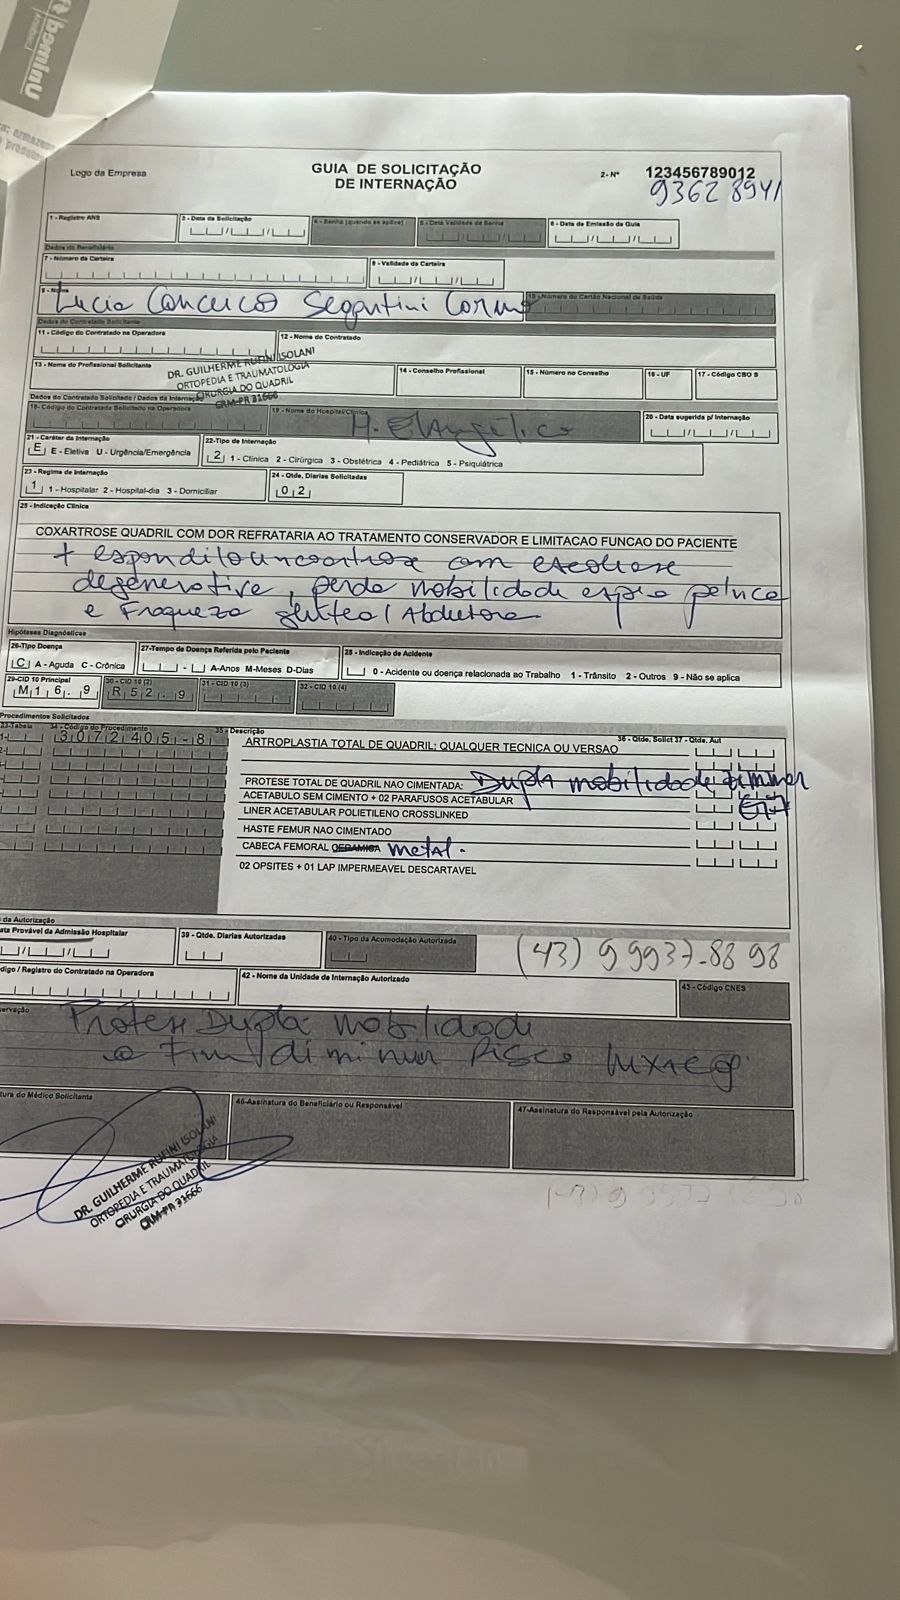 Unimed
Londrina
Logo da Empresa
GUIA DE SOLICITAÇÃO
DE INTERNAÇÃO
2- Nº 123456789012
9362 8941
1 - Registro ANS
3 - Data da Solicitação
4 - Senha (quando se aplica)
5 - Data Validade da Senha
6 - Data de Emissão da Guia
Dados do Beneficiário
7 - Número da Carteira
8 - Validade da Carteira
9 - Nome
Lucia
10 - Número do Cartão Nacional de Saúde
Dados do Contratado Solicitante
11 - Código do Contratado na Operadora
12 - Nome do Contratado
13 - Nome do Profissional Solicitante
DR. GUILHERME RUFINI ISOLANI
ORTOPEDIA E TRAUMATOLOGIA
CIRURGIA DO QUADRIL
CRM-PR 31666
14 - Conselho Profissional
15 - Número no Conselho
16 - UF
17 - Código CBO S
Dados do Contratado Solicitado / Dados da Internação
18 - Código do Contratado Solicitado na Operadora
19 - Nome do Hospital/Clínica
H. Evangelico
20 - Data sugerida p/ Internação
21 - Caráter da Internação
E E - Eletiva U - Urgência/Emergência
22-Tipo de Internação
2 1 - Clínica 2 - Cirúrgica 3 - Obstétrica 4 - Pediátrica 5 - Psiquiátrica
23 - Regime de Internação
1 1 - Hospitalar 2 - Hospital-dia 3 - Domiciliar
24 - Qtde. Diarias Solicitadas
02
25 - Indicação Clínica
COXARTROSE QUADRIL COM DOR REFRATARIA AO TRATAMENTO CONSERVADOR E LIMITACAO FUNCAO DO PACIENTE
+ espondilouncoartrose com escoliose
degenerativa, perda mobilidade espino pelvica
e Fraqueza glútea / Abdutora
Hipóteses Diagnósticas
26-Tipo Doença
C A - Aguda C - Crônica
27-Tempo de Doença Referida pelo Paciente
A-Anos M-Meses D-Dias
28 - Indicação de Acidente
0 - Acidente ou doença relacionada ao Trabalho 1 - Trânsito 2 - Outros 9 - Não se aplica
29-CID 10 Principal
M16.9
30 - CID 10 (2)
R52.9
31 - CID 10 (3)
32 - CID 10 (4)
Procedimentos Solicitados
33-Tabela
34 - Código do Procedimento
35 - Descrição
36 - Qtde. Solict 37 - Qtde. Aut
3072405-8
ARTROPLASTIA TOTAL DE QUADRIL; QUALQUER TECNICA OU VERSAO
PROTESE TOTAL DE QUADRIL NAO CIMENTADA: Dupla mobilidade
ACETABULO SEM CIMENTO + 02 PARAFUSOS ACETABULAR
LINER ACETABULAR POLIETILENO CROSSLINKED
HASTE FEMUR NAO CIMENTADO
CABECA FEMORAL CERAMICA metal.
02 OPSITES + 01 LAP IMPERMEAVEL DESCARTAVEL
da Autorização
ata Provável da Admissão Hospitalar
39 - Qtde. Diarias Autorizadas
40 - Tipo da Acomodação Autorizada
(43) 9 9937-8898
digo / Registro do Contratado na Operadora
42 - Nome da Unidade de Internação Autorizado
43 - Código CNES
servação
Prótese Dupla mobilidade
a Fim / diminuir Risco luxação
tura do Médico Solicitante
46-Assinatura do Beneficiário ou Responsável
47-Assinatura do Responsável pela Autorização
DR. GUILHERME RUFINI ISOLANI
ORTOPEDIA E TRAUMATOLOGIA
CIRURGIA DO QUADRIL
CRM-PR 31666